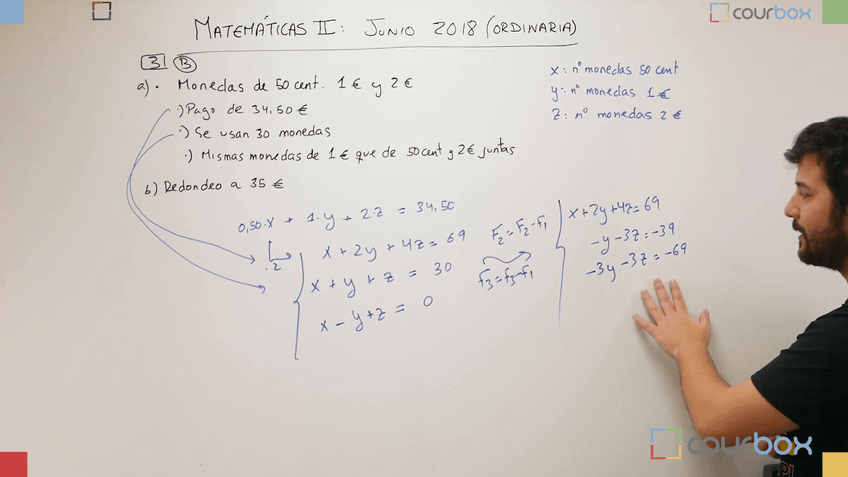 MATEMÁTICAS II: JUNIO 2018 (ORDINARIA)
courbox
3 B
a) · Monedas de 50 cent. 1 € y 2 €
·) Pago de 34,50 €
·) Se usan 30 monedas
·) Mismas monedas de 1 € que de 50 cent y 2 € juntas
b) Redondeo a 35 €
x: nº monedas 50 cent
y: nº monedas 1 €
z: nº monedas 2 €
0,50·x + 1·y + 2·z = 34,50
·2
x + 2y + 4z = 69
x + y + z = 30
x - y + z = 0
F2 = F2 - F1
F3 = F3 - F1
x + 2y + 4z = 69
-y - 3z = -39
-3y - 3z = -69
courbox